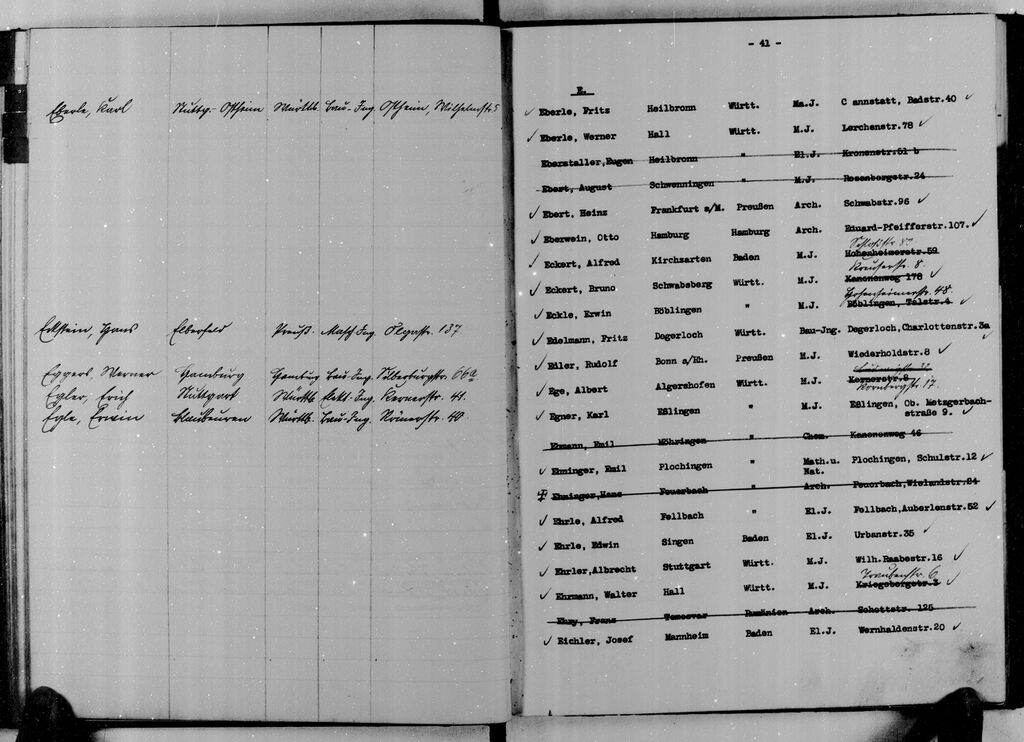 Eberle, Karl Stuttg.-Ostheim Württb. Bau-Ing Ostheim, Wilhelmstr. 5
Eckstein, Hans Elberfeld Preuß. Masch Ing. Olgastr. 137
Eggers, Werner Hamburg Hamburg Bau-Ing. Silberburgstr. 66a
Egler, Erich Stuttgart Württb. Elekt.-Ing. Kernerstr. 41.
Egle, Erwin Blaubeuren Württb. Bau-Ing. Römerstr. 40.
- 41 -
E.
✓ Eberle, Fritz Heilbronn Württ. Ma.J. Cannstatt, Badstr.40 ✓
✓ Eberle, Werner Hall Württ. M.J. Lerchenstr.78 ✓
Eberstaller,Eugen Heilbronn " El.J. Kronenstr.51 b
Ebert, August Schwenningen " M.J. Rosenbergstr.24
✓ Ebert, Heinz Frankfurt a/M. Preußen Arch. Schwabstr.96 ✓
✓ Eberwein, Otto Hamburg Hamburg Arch. Eduard-Pfeifferstr.107. ✓
✓ Eckert, Alfred Kirchzarten Baden M.J. Hohenheimerstr.59
Kreuserstr. 8.
✓ Eckert, Bruno Schwabsberg Württ. M.J. Kanonenweg 178 ✓
Hohenheimerstr. 48.
✓ Eckle, Erwin Böblingen " M.J. Böblingen, Talstr.4 ✓
✓ Edelmann, Fritz Degerloch Württ. Bau-Jng. Degerloch,Charlottenstr.3a
✓ Eiler, Rudolf Bonn a/Rh. Preußen M.J. Wiederholdstr.8 ✓
✓ Ege, Albert Algershofen Württ. M.J. Kernerstr.8 ✓
Kornbergstr. 17.
✓ Egner, Karl Eßlingen " M.J. Eßlingen, Ob. Metzgerbach-
straße 9. ✓
Ehmann, Emil Möhringen " Chem. Kanonenweg 46
✓ Ehninger, Emil Plochingen " Math.u. Plochingen, Schulstr.12 ✓
Nat.
Ehninger,Hans Feuerbach " Arch. Feuerbach,Wielandstr.24
✓ Ehrle, Alfred Fellbach " El.J. Fellbach,Auberlenstr.52 ✓
✓ Ehrle, Edwin Singen Baden El.J. Urbanstr.35 ✓
✓ Ehrler,Albrecht Stuttgart Württ. M.J. Wilh.Raabestr.16 ✓
Traubenstr. 6.
✓ Ehrmann, Walter Hall Württ. M.J. Kriegsbergstr.3 ✓
Ehry, Franz Temesvar Rumänien Arch. Schottstr. 125
✓ Eichler, Josef Mannheim Baden El.J. Wernhaldenstr.20 ✓